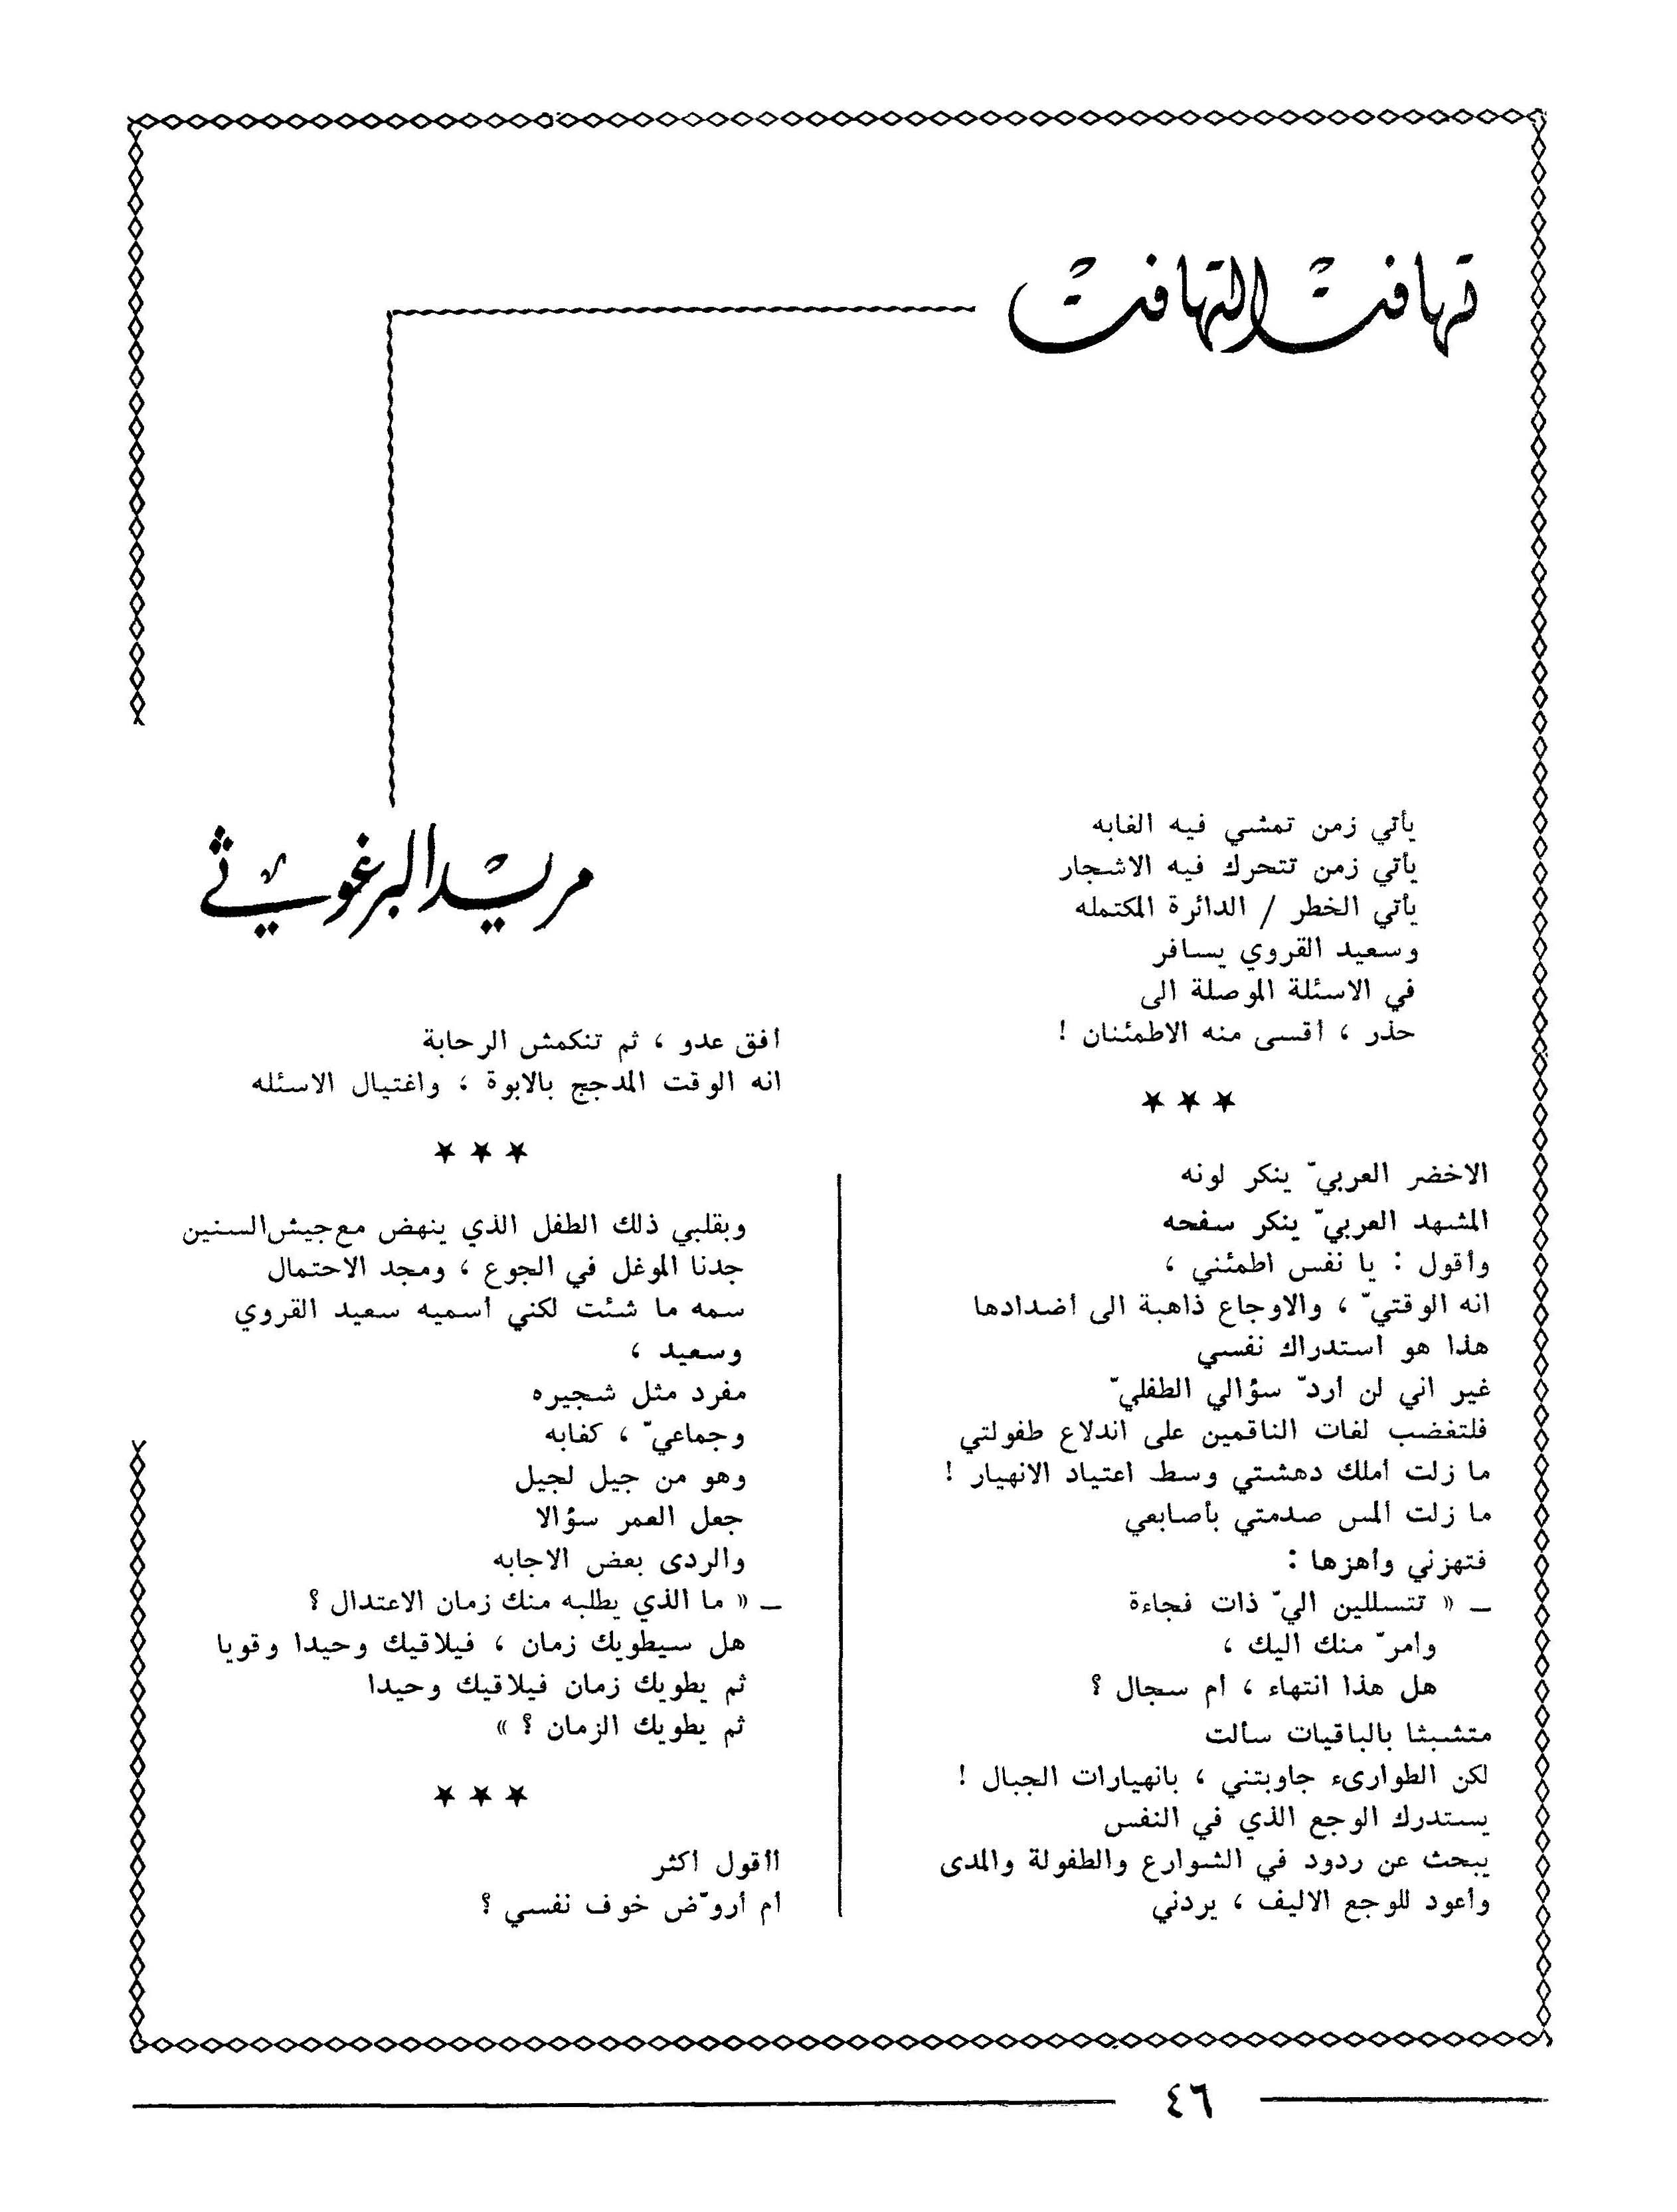 تهافت التهافت
مريد البرغوثي
يأتي زمن تمشي فيه الغابه
يأتي زمن تتحرك فيه الاشجار
يأتي الخطر / الدائرة المكتمله
وسعيد القروي يسافر
في الاسئلة الموصلة الى
حذر ، أقسى منه الاطمئنان !
★ ★ ★
الاخضر العربيّ ينكر لونه
المشهد العربيّ ينكر سفحه
وأقول : يا نفس اطمئني ،
انه الوقتيّ ، والاوجاع ذاهبة الى أضدادها
هذا هو استدراك نفسي
غير اني لن أردّ سؤالي الطفليّ
فلتغضب لغات الناقمين على اندلاع طفولتي
ما زلت أملك دهشتي وسط اعتياد الانهيار !
ما زلت ألمس صدمتي بأصابعي
فتهزني وأهزها :
ـ « تتسللين اليّ ذات فجاءة
وأمرّ منك اليك ،
هل هذا انتهاء ، أم سجال ؟
متشبثا بالباقيات سألت
لكن الطوارىء جاوبتني ، بانهيارات الجبال !
يستدرك الوجع الذي في النفس
يبحث عن ردود في الشوارع والطفولة والمدى
وأعود للوجع الاليف ، يردني
أفق عدو ، ثم تنكمش الرحابة
انه الوقت المدجج بالابوة ، واغتيال الاسئله
★ ★ ★
وبقلبي ذلك الطفل الذي ينهض مع جيش السنين
جدنا الموغل في الجوع ، ومجد الاحتمال
سمه ما شئت لكني أسميه سعيد القروي
وسعيد ،
مفرد مثل شجيره
وجماعيّ ، كغابه
وهو من جيل لجيل
جعل العمر سؤالا
والردى بعض الاجابه
ـ « ما الذي يطلبه منك زمان الاعتدال ؟
هل سيطويك زمان ، فيلاقيك وحيدا وقويا
ثم يطويك زمان فيلاقيك وحيدا
ثم يطويك الزمان ؟ »
★ ★ ★
أأقول أكثر
أم أروّض خوف نفسي ؟
٤٦